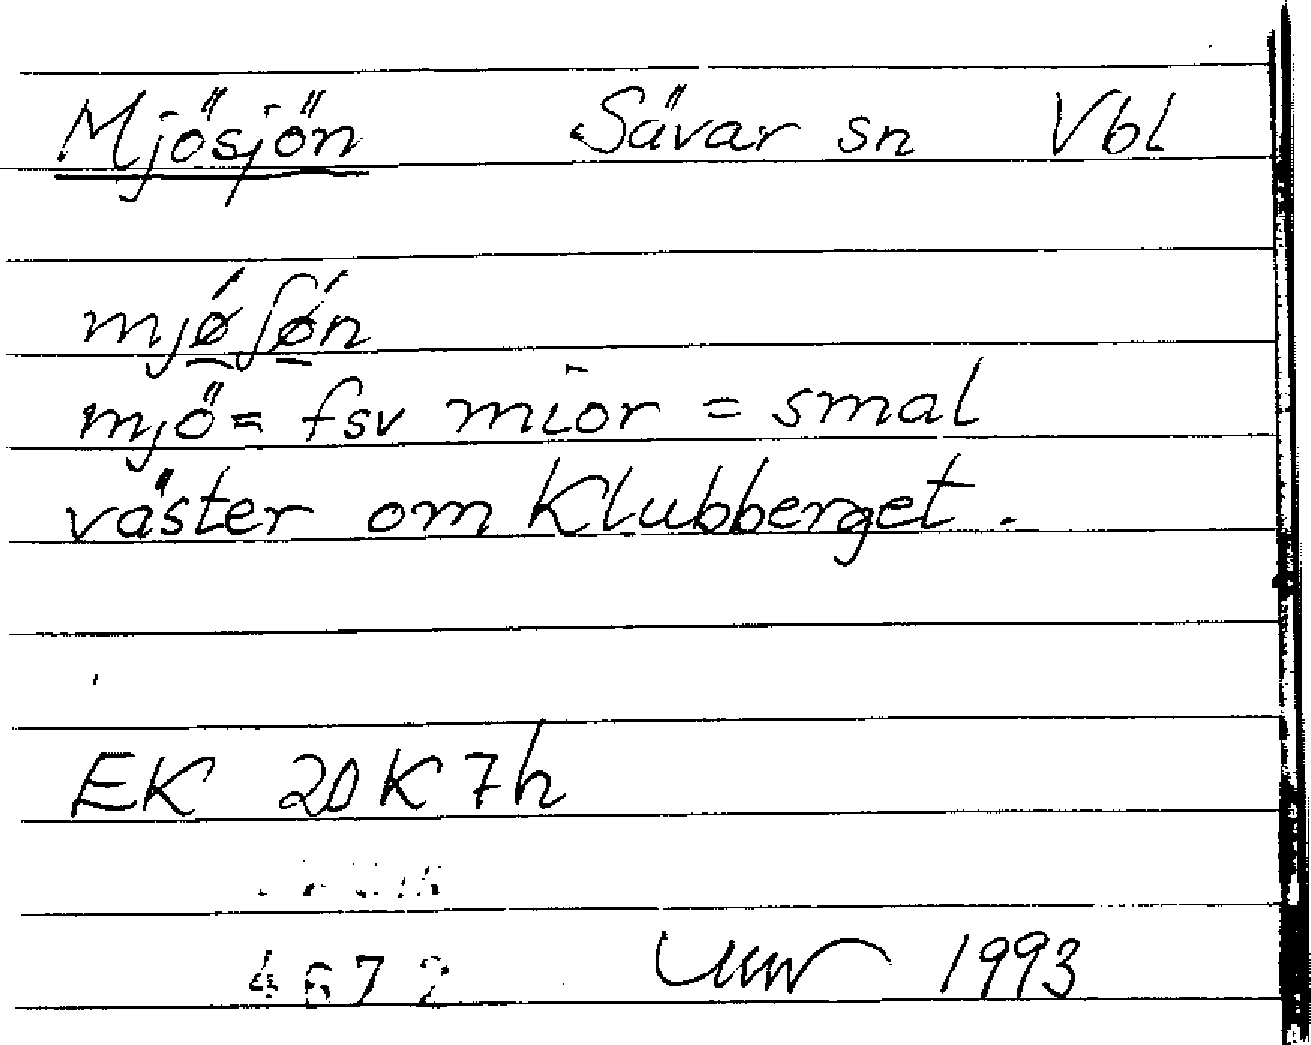 Mjösjön Sävar sn Vbl
mjǿʃǿn
mjö= fsv mior = smal
väster om Klubberget.
EK 20K7h
4672 1993